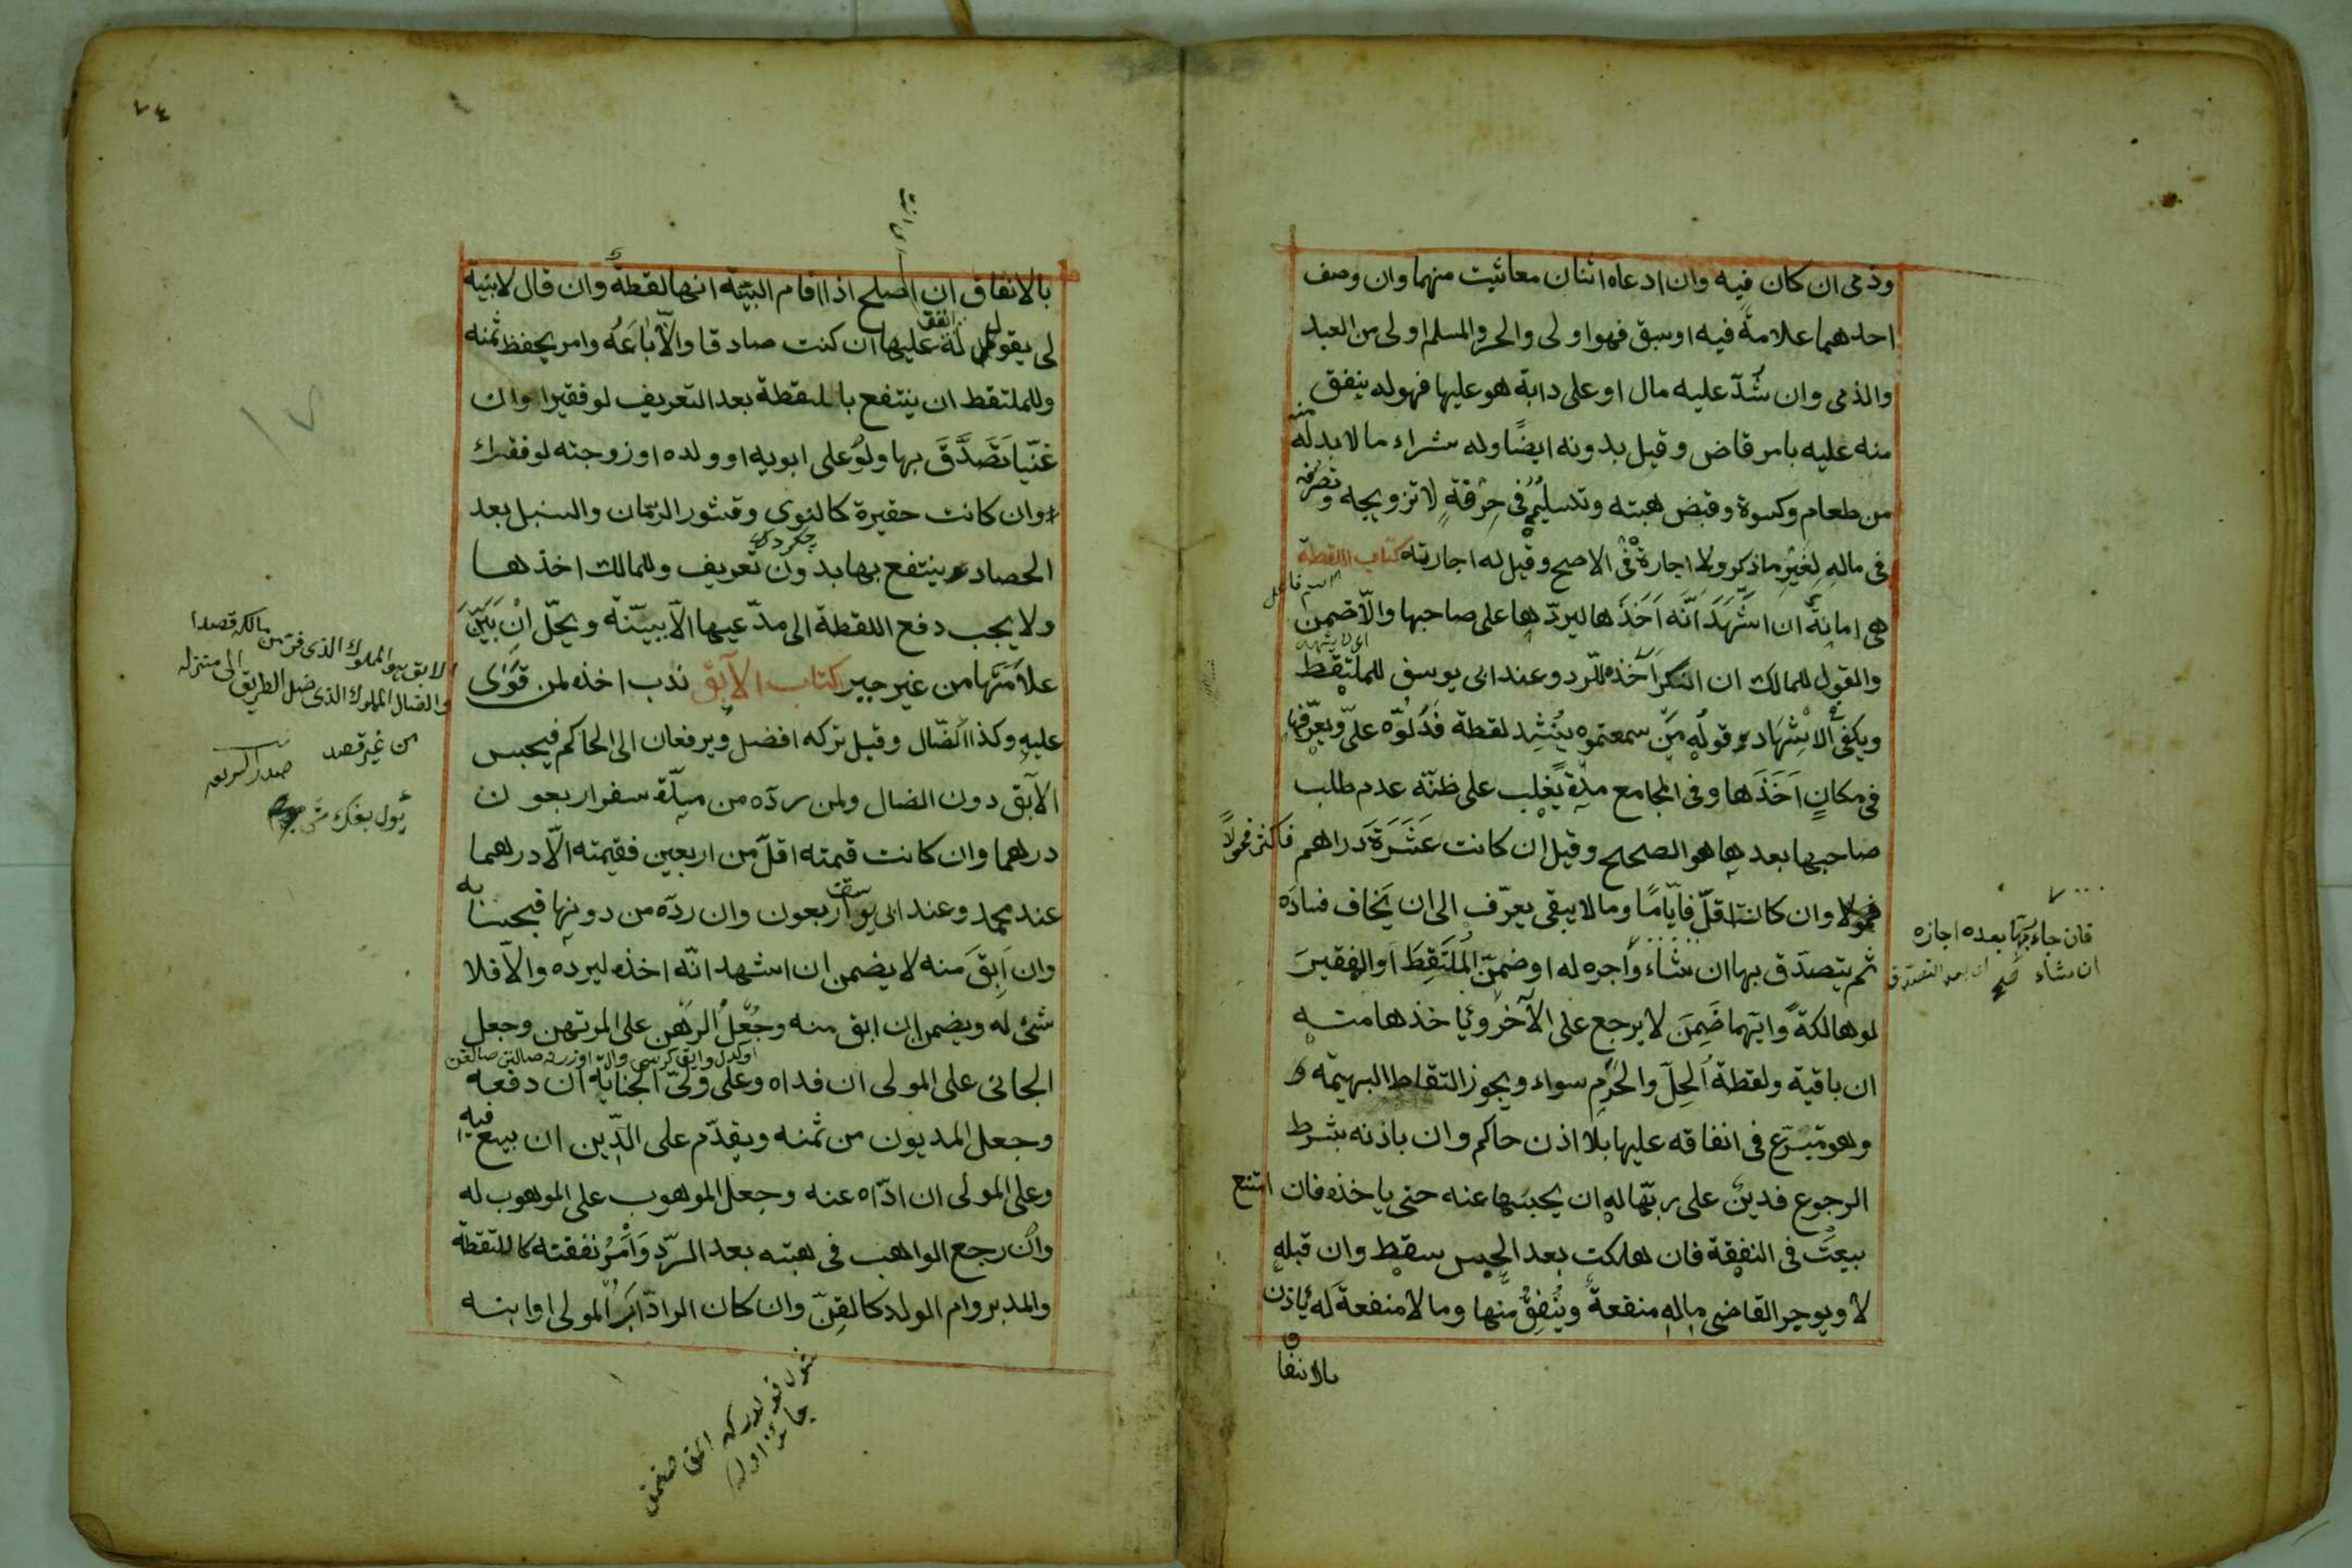 وذمى ان كان فيه وان ادعاه اثنان معا ثبت منهما وان وصف
احدهما علامة فيه او سبق فهو اولى والحر والمسلم اولى من العبد
والذمى وان شُدّ عليه مال او على دابة هو عليها فهو له ينفق
منه عليه بامر قاض وقيل بدونه ايضًا وله شراء ما لا بد له منه
من طعام وكسوة وقبض هبته وتسليمُه فى حِرفةٍ لا تزويجه وتصرفه
فى مالِهِ لِغَيْرِ ما ذكر ولا اجارة فى الاصح وقيل له اجارته كتاب اللقطة
هى امانة ان اَشْهَدَ اَنّه اَخَذَها ليردّها على صاحبها والّا ضمن
والقول للمالك ان انكر اَخذه للرد وعند ابى يوسف للملتقط
ويكفى الاِشْهَاد قولُهِ مَنْ سمعتموه يُنْشِد لقطة فَدُلُوّه علىّ ويعرّفها
فى مكانٍ اَخَذَها وفى المجامع مدّة يَغْلِب على ظنّه عدم طلب
صاحبها بعدها هو الصحيح وقيل ان كانت عَشَرَةَ دَراهم فاكثر فحولًا
وان كانت اقلّ فايّامًا وما لا يبقى يعرّف الى ان يَخاف فساده
ثم يتصدّق بها ان شاء وأجره له او ضمّن المُلْتَقِطَ او الفقيرَ
لو هالكةً وايّهما ضَمِنَ لا يرجع على الآخر ويأخذها منه
ان باقية ولقطة الحِلّ والحَرَم سواء ويجوز التقاط البهيمة
وهو متبرّع فى انفاقه عليها بلا اذن حاكم وان باذنه بشرط
الرجوع فدين على ربّها له ان يحبسها عنه حتى ياخذه فان امتنع
بيعتْ فى النفقة فان هلكت بعد الحبس سقط وان قبله
لا ويوجر القاضى ما له منفعةٌ ويُنْفِقُ منها وما لا منفعة لَه يأذن
بالانفاق
فان جاء ربّها بعده اجازه
ان شاء صح اى بعد التصدق
٧٤
بالانفاق ان اصلح اذا اقام البيّنة انها لقطة وان قال لا بيّنة
لى يقول له انفق عليها ان كنت صادقا والّا بَاعَهُ وامر بحفظ ثمنه
وللملتقط ان ينتفع باللقطة بعد التعريف لو فقيرا وان
غنيّا تَصَدَّقَ بها ولو على ابويه او ولده او زوجته لو فقراء
وان كانت حقيرة كالنوى وقشور الرمّان والسنبل بعد
الحصاد ينتفع بها بدون تعريف وللمالك اخذها
ولا يجب دفع اللقطة الى مدّعيها الّا ببيّنة ويحلّ اِنْ بَيّنَ
علامَتَها من غير جبر كتاب الآبق ندب اخذه لمن قوى
عليهِ وكذا الضّال وقيل تركه افضل ويرفعان الى الحاكم فيحبس
الآبق دون الضال ولمن ردّه من مدّة سفر اربعون
درهما وان كانت قيمته اقلّ من اربعين فقيمته الّا درهما
عند محمد وعند ابى يوسف اربعون وان ردّه من دونها فبحسابه
وان اَبِقَ منه لا يضمن ان اشهد انّه اخذه ليرده والّا فلا
شئ له ويضمن ان ابق منه وجُعْلُ الرهن على المرتهن وجعل
الجانى على المولى ان فداه وعلى ولىّ الجناية ان دفعه
وجعل المديون من ثمنه ويقدّم على الدّين ان بيع فيه
وعلى المولى ان ادّاه عنه وجعل الموهوب على الموهوب له
وان رجع الواهب فى هبته بعد الردّ وَاَمْرُ نفقته كاللقطة
والمدبر وام الولد كالقِنّ وان كان الرادّ اَبَ المولى او ابنه
الآبق هو المملوك الذى فر من مالكه قصدا
والضال المملوك الذى ضل الطريق الى منزله
من غير قصد
صدر الشريعه